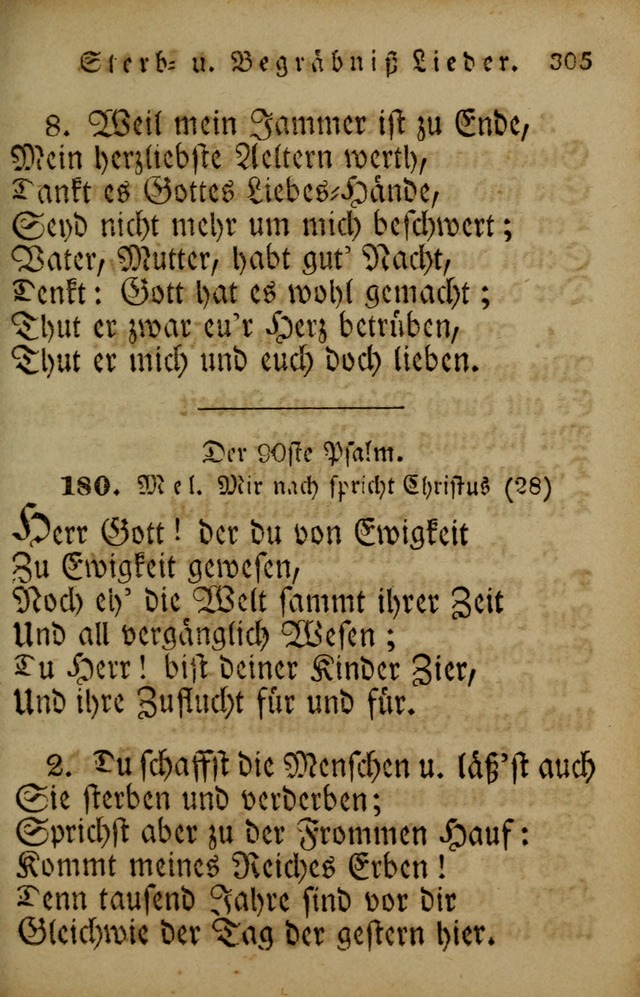 Sterb- u. Begräbniß Lieder. 305
8. Weil mein Jammer ist zu Ende,
Mein herzliebste Aeltern werth,
Dankt es Gottes Liebes-Hände,
Seyd nicht mehr um mich beschwert;
Vater, Mutter, habt gut' Nacht,
Denkt: Gott hat es wohl gemacht;
Thut er zwar eu'r Herz betrüben,
Thut er mich und euch doch lieben.
Der 90ste Psalm.
180. Mel. Mir nach spricht Christus (28)
Herr Gott! der du von Ewigkeit
Zu Ewigkeit gewesen,
Noch eh' die Welt sammt ihrer Zeit
Und all vergänglich Wesen;
Du Herr! bist deiner Kinder Zier,
Und ihre Zuflucht für und für.
2. Du schaffst die Menschen u. läß'st auch
Sie sterben und verderben;
Sprichst aber zu der Frommen Hauf:
Kommt meines Reiches Erben!
Denn tausend Jahre sind vor dir
Gleichwie der Tag der gestern hier.